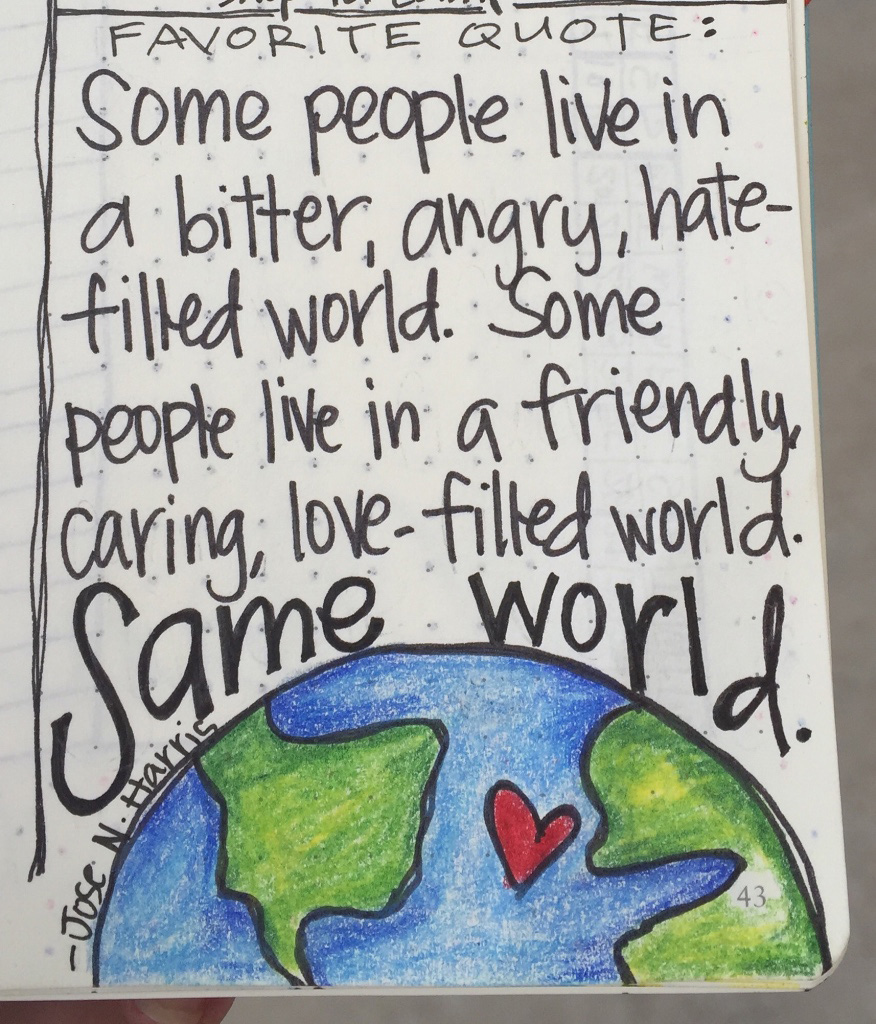 FAVORITE QUOTE:
Some people live in
a bitter, angry, hate-
filled world. Some
people live in a friendly,
caring, love-filled world.
Same world.
-Jose N. Harris
43